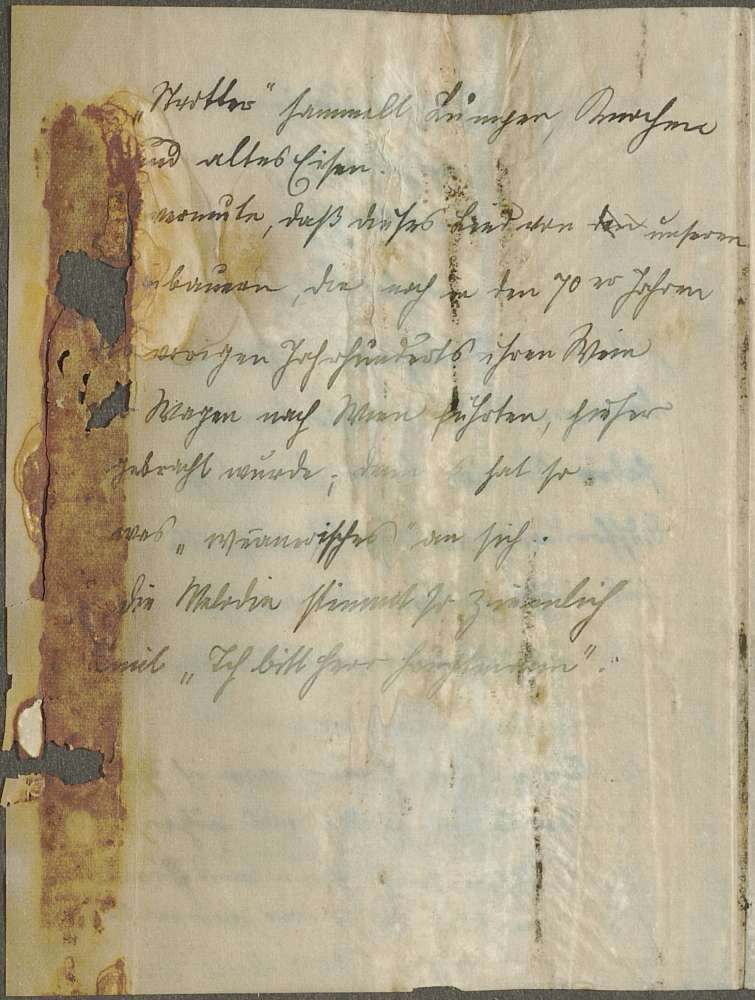 „Strotter“ sammelt Lumpen, Knochen
und altes Eisen.
vermute, daß dieses Lied von den unseren
bauern, die noch in den 70er Jahren
vorigen Jahrhunderts ihren Wein
Wagen nach Wien führten, hieher
gebracht wurde; denn es hat so
was „wienerisches“ an sich.
Die Melodie stimmt so ziemlich
mit „Ich bitt Herr Hauptmann“.